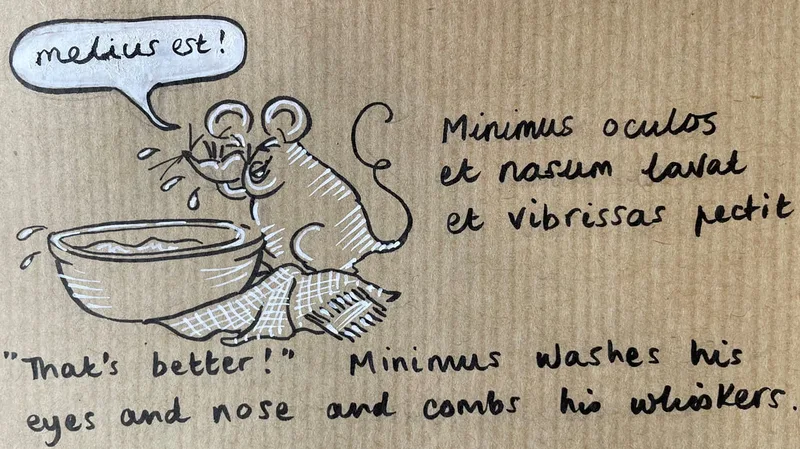 melius est!
Minimus oculos
et nasum lavat
et vibrissas pectit
"That's better!" Minimus washes his
eyes and nose and combs his whiskers.